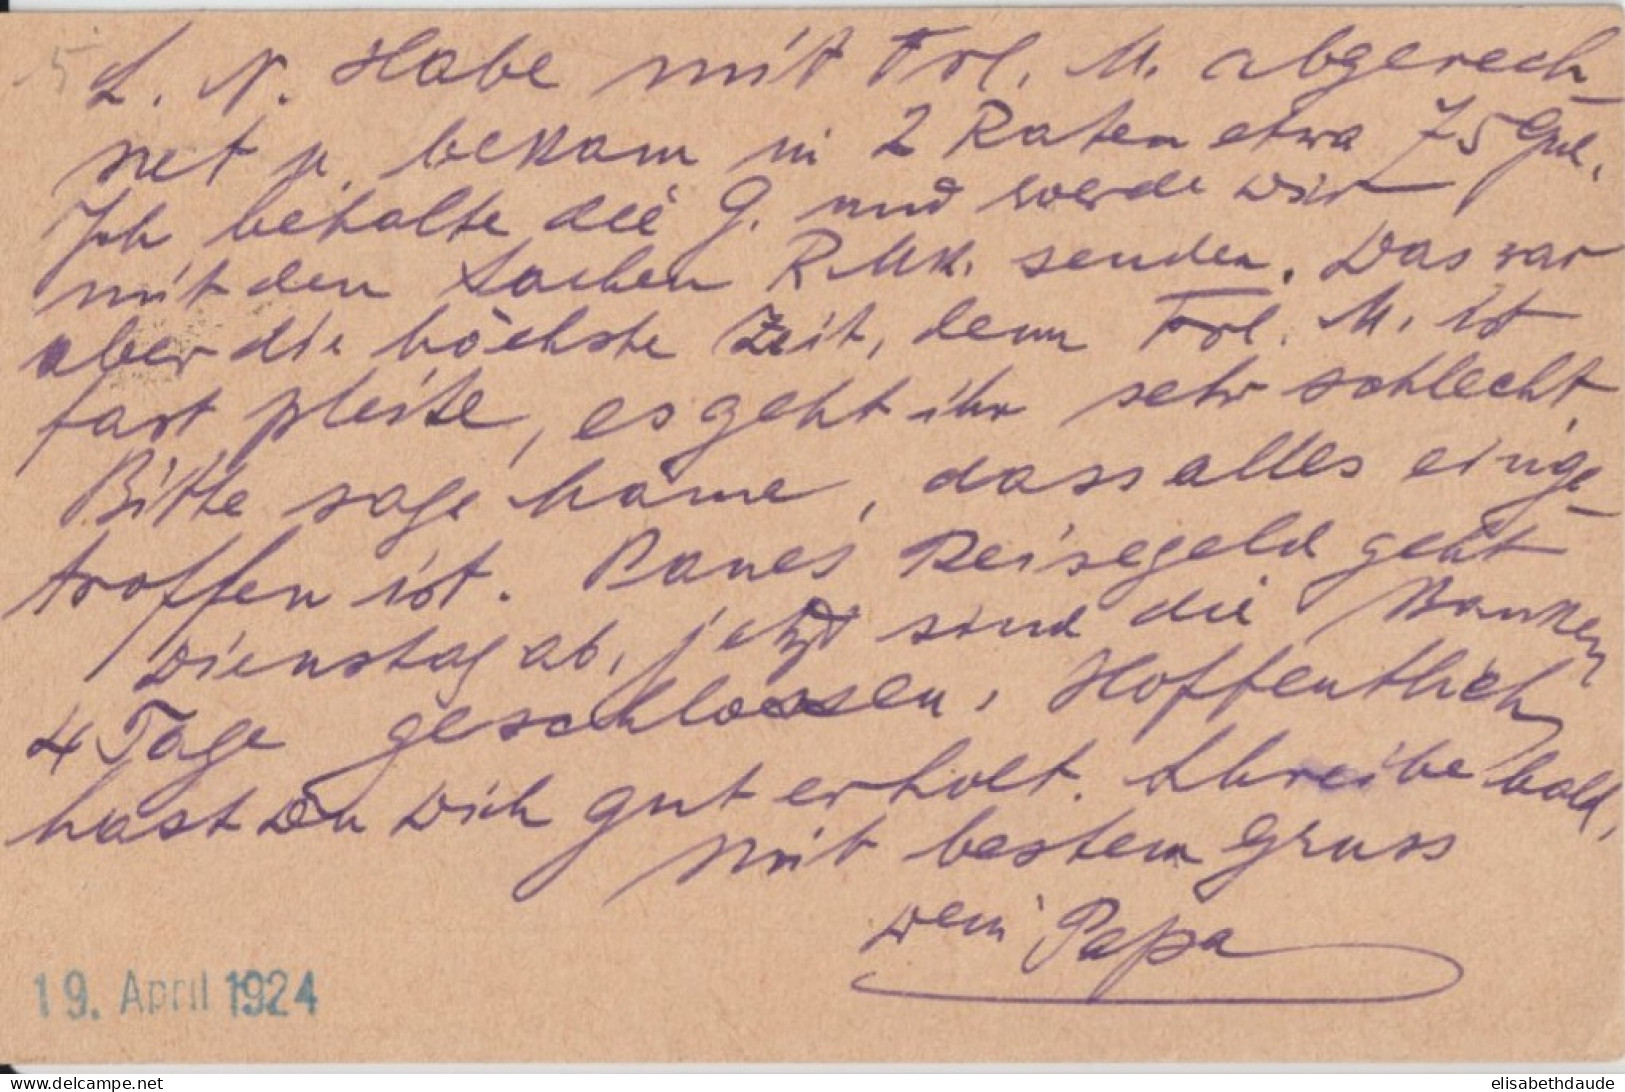 L. N. Habe mit Frl. M. abgerech-
net u. bekam in 2 Raten etwa 75 Gul.
Ich behalte die G. und werde Dir
mit den Sachen R.Mk. senden. Das war
aber die höchste Zeit, denn Frl. M. ist
fast pleite, es geht ihr sehr schlecht.
Bitte sage, dass alles einge-
troffen ist. Reisegeld geht
Dienstag ab, jetzt sind die Banken
4 Tage geschlossen. Hoffentlich
hast Du Dich gut erholt. Schreibe bald,
mit bestem Gruss
Dein Papa
19. April 1924
delcampe.net
elisabethdaude